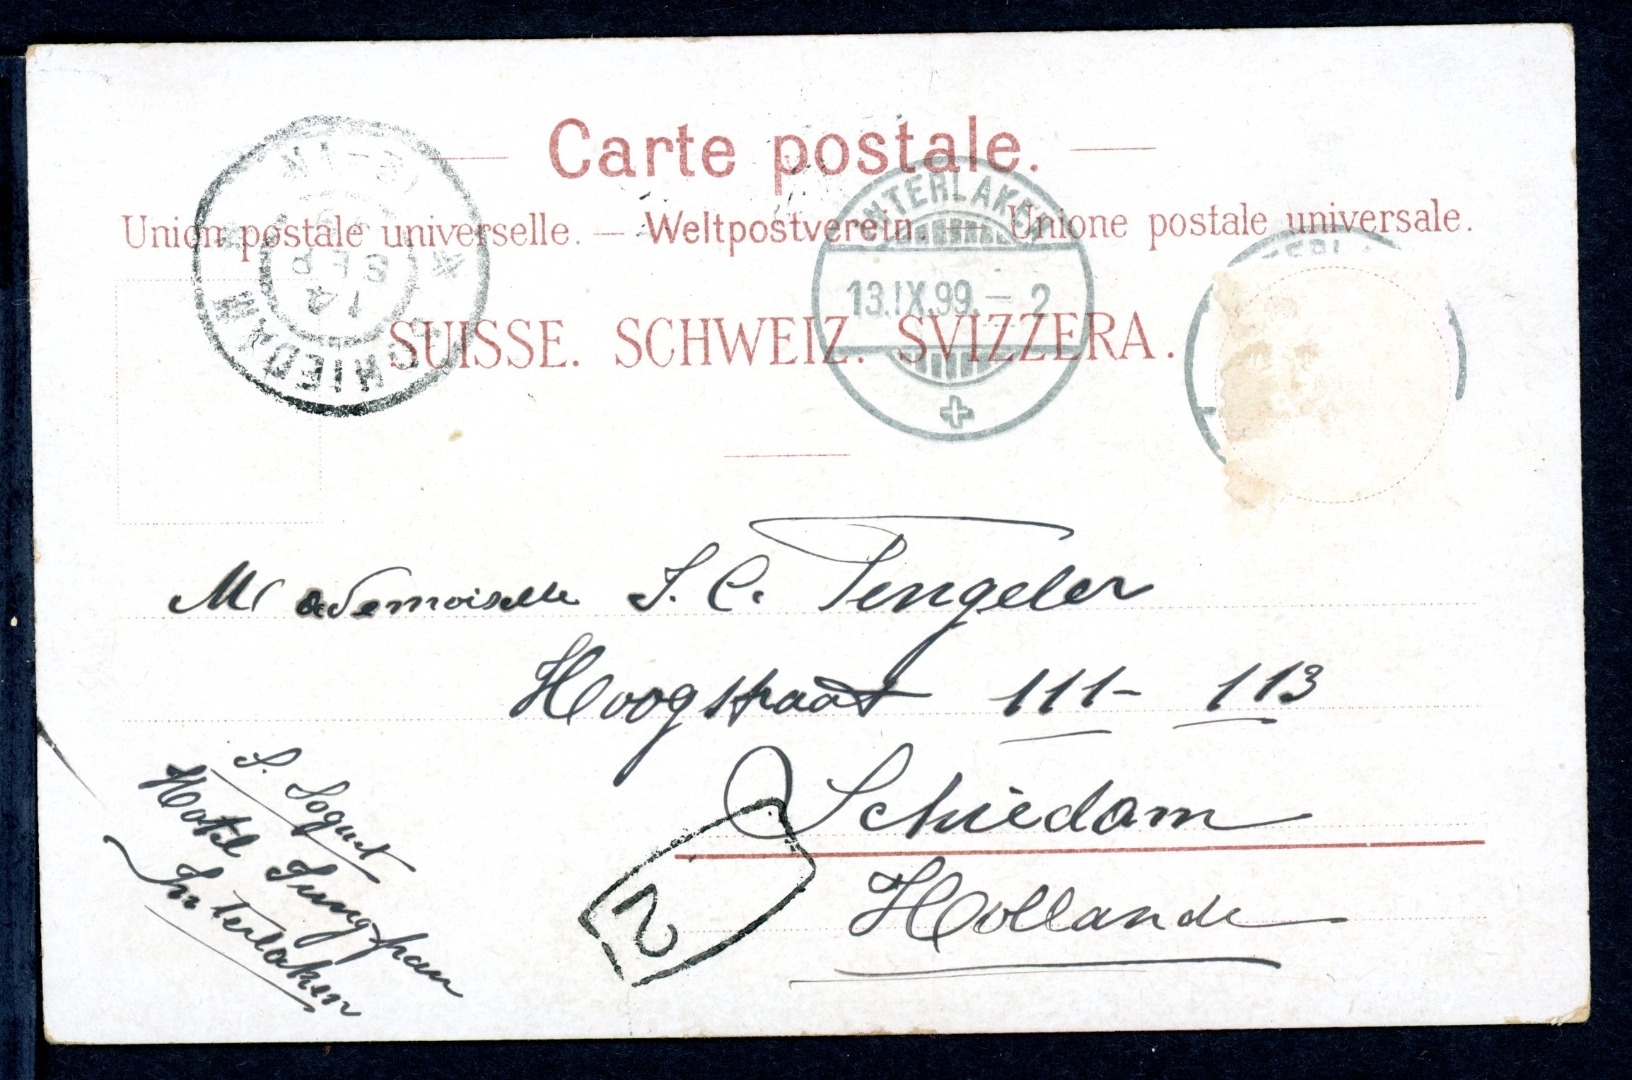 Carte postale.
Union postale universelle. — Weltpostverein. — Unione postale universale.
SUISSE. SCHWEIZ. SVIZZERA.
SCHIEDAM
14
SEP
99
12-1N
INTERLAKEN
13.IX.99.–2
Mademoiselle J. C. Tengeler
Hoogstraat 111-113
Schiedam
Hollande
S. Soguet
Hotel Jungfrau
Interlaken
2